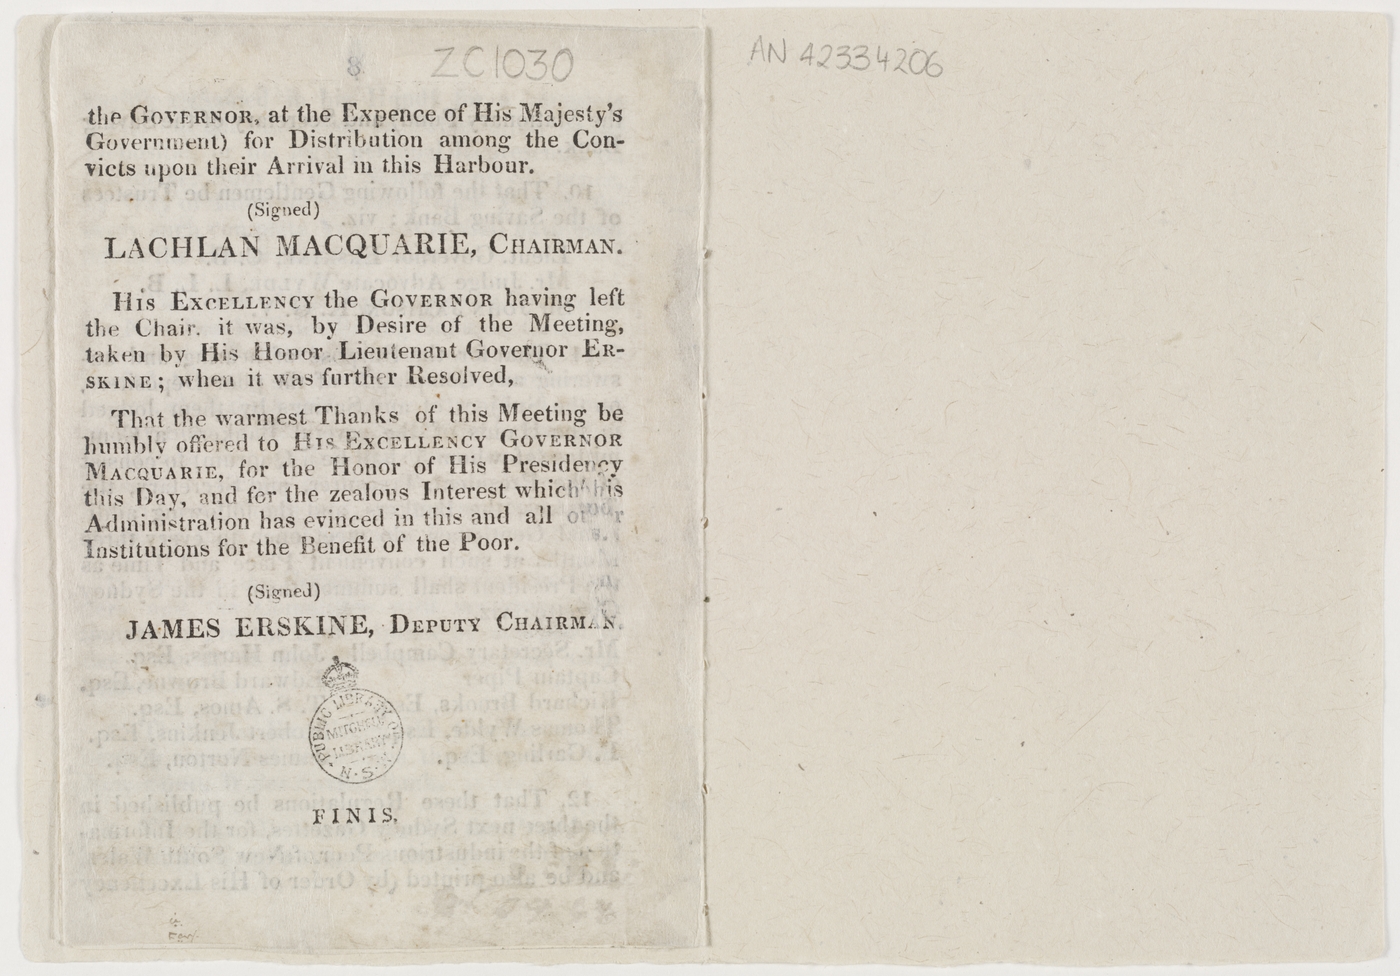 8
ZC1030
the GOVERNOR, at the Expence of His Majesty's
Government) for Distribution among the Con-
victs upon their Arrival in this Harbour.
(Signed)
LACHLAN MACQUARIE, CHAIRMAN.
His EXCELLENCY the GOVERNOR having left
the Chair. it was, by Desire of the Meeting,
taken by His Honor Lieutenant Governor ER-
SKINE; when it was further Resolved,
That the warmest Thanks of this Meeting be
humbly offered to HIS EXCELLENCY GOVERNOR
MACQUARIE, for the Honor of His Presidency
this Day, and for the zealous Interest which his
Administration has evinced in this and all other
Institutions for the Benefit of the Poor.
(Signed)
JAMES ERSKINE, DEPUTY CHAIRMAN.
PUBLIC LIBRARY OF N.S.W.
MITCHELL
LIBRARY
FINIS.
AN 42334206